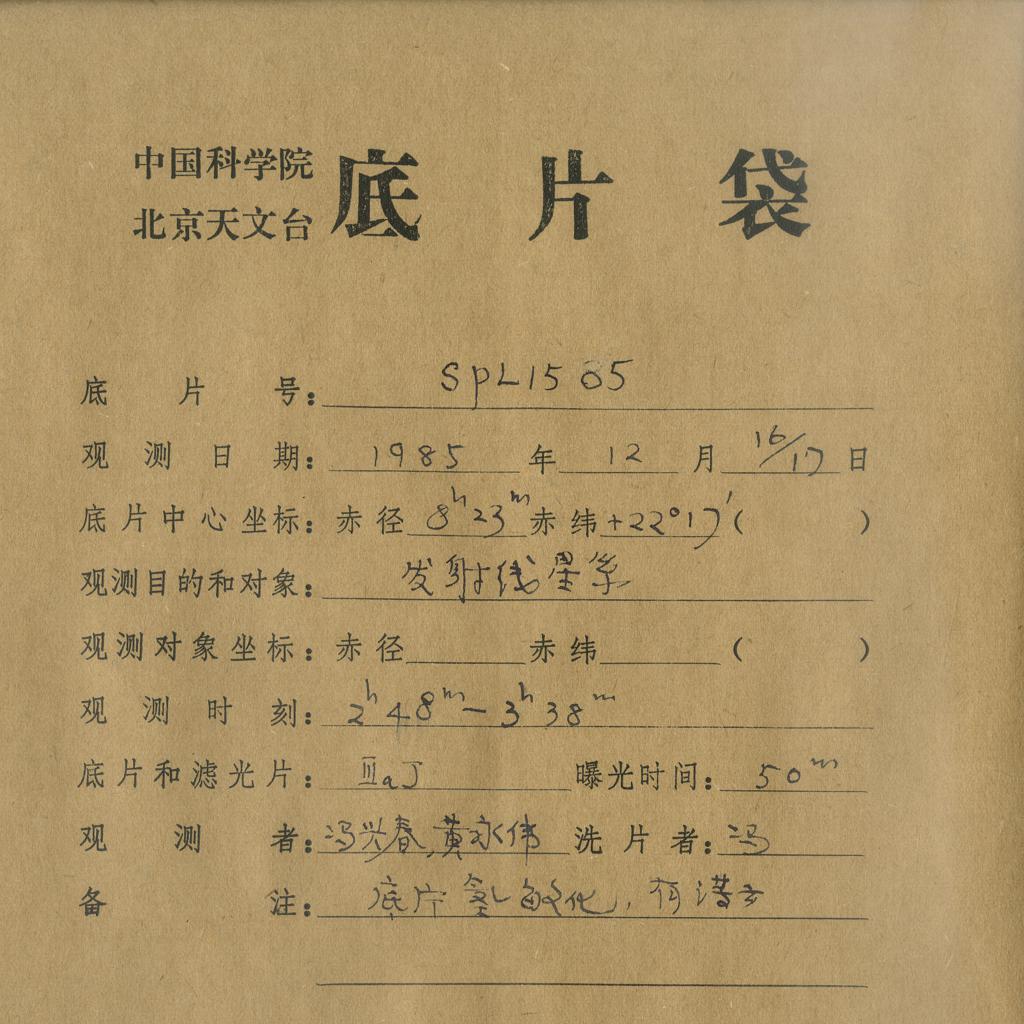 中国科学院
北京天文台
底片袋
底片号: SPL1585
观测日期: 1985 年 12 月 16/17 日
底片中心坐标: 赤径 8h23m 赤纬 +22°17′ ( )
观测目的和对象: 发射线星系
观测对象坐标: 赤径 赤纬 ( )
观测时刻: 2h48m—3h38m
底片和滤光片: ⅢaJ 曝光时间: 50m
观测者: 冯兴春,黄永伟 洗片者: 冯
备注: 底片氢敏化,有薄云